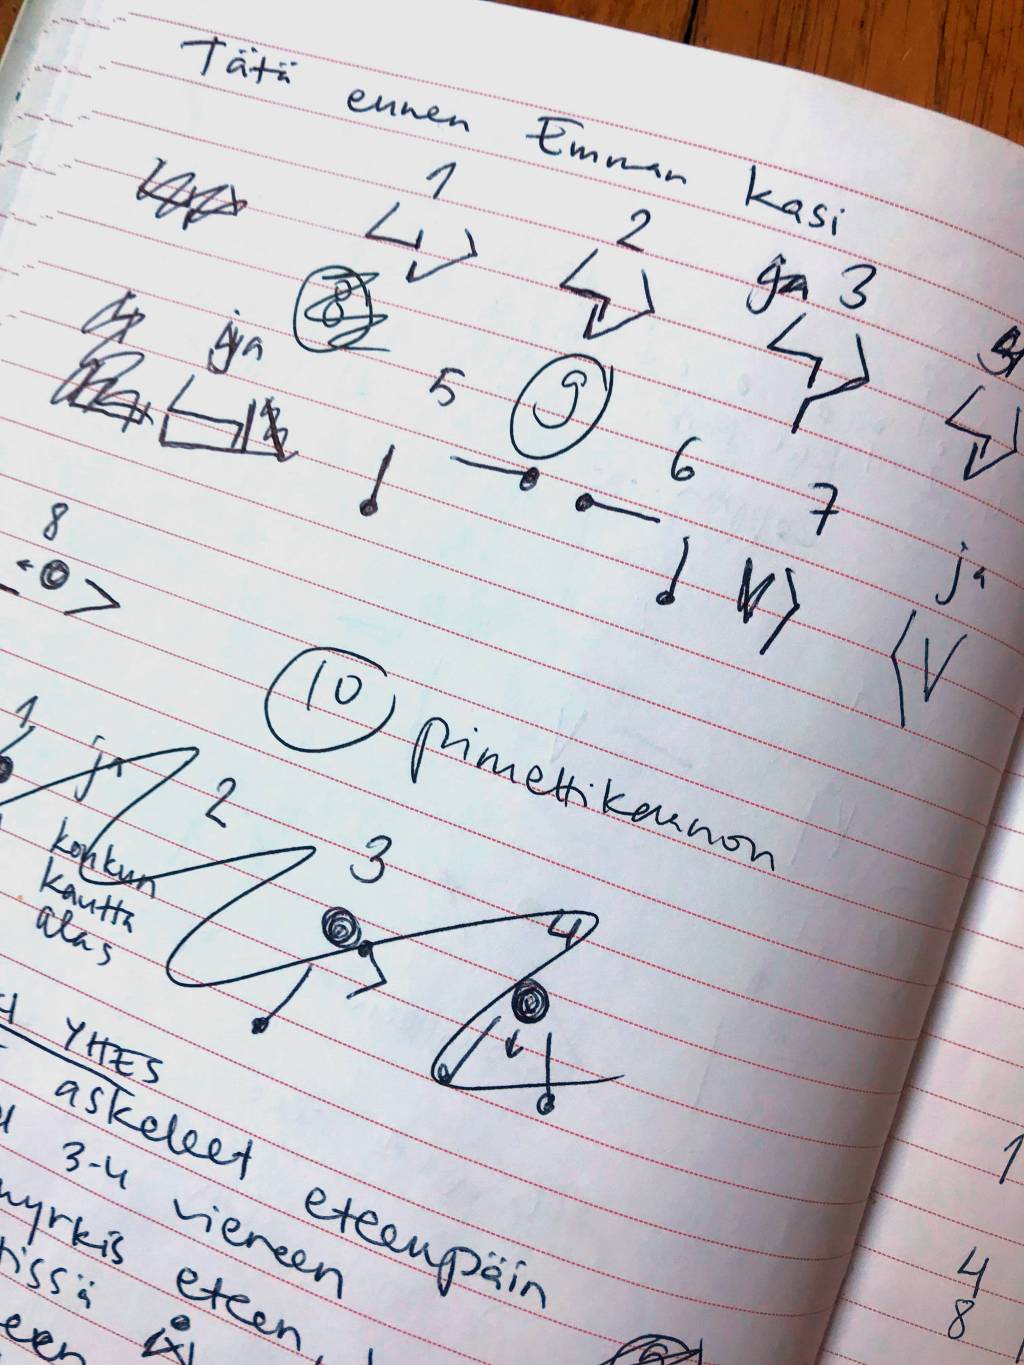 Tätä ennen Emman kasi
1 2 ja 3
8
ja 5 9 6 7 ja
8
10 pimettikaunon
1 ja 2 3 4
konkun
kautta
alas
YHES
askeleet eteenpäin
3-4 viereen
nyrkis eteen,
1
4
8